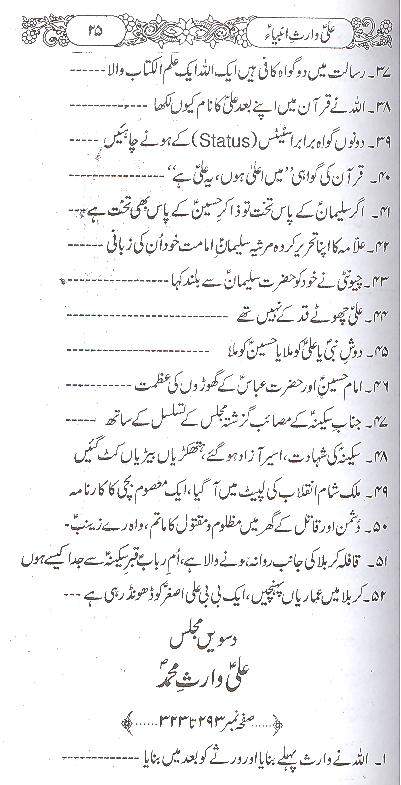 علیؑ وارثِ انبیاءؑ
۲۵
۳۷۔ رسالت میں دو گواہ کافی ہیں ایک اللہ ایک علم الکتاب والا ------
۳۸۔ اللہ نے قرآن میں اپنے بعد علیؑ کا نام کیوں لکھا ----------
۳۹۔ دونوں گواہ برابر اسٹیٹس (Status) کے ہونے چاہئیں -----
۴۰۔ قرآن کی گواہی ’’میں اعلیٰ ہوں، یہ علیؑ ہے‘‘ -------------
۴۱۔ اگر سلیمانؑ کے پاس تخت تو ذاکرِ حسینؑ کے پاس بھی تخت ہے --
۴۲۔ علامہ کا اپنا تحریر کردہ مرثیہ سلیمانِؑ امامت خود اُن کی زبانی ------
۴۳۔ چیونٹی نے خود کو حضرت سلیمانؑ سے بلند کہا ---------------
۴۴۔ علیؑ چھوٹے قد کے نہیں تھے ----------------------
۴۵۔ دوشِ نبیؐ یا علیؑ کو ملا یا حسینؑ کو ملا --------------------
۴۶۔ امام حسینؑ اور حضرت عباسؑ کے گھوڑوں کی عظمت -----------
۴۷۔ جنابِ سکینہؑ کے مصائب گزشتہ مجلس کے تسلسل کے ساتھ -----
۴۸۔ سکینہؑ کی شہادت، اسیر آزاد ہو گئے، ہتھکڑیاں بیڑیاں کٹ گئیں
۴۹۔ ملک شام انقلاب کی لپیٹ میں آ گیا، ایک معصوم بچی کا کارنامہ
۵۰۔ دُشمن اور قاتل کے گھر میں مظلوم و مقتول کا ماتم، واہ رے زینبؑ۔
۵۱۔ قافلہ کربلا کی جانب روانہ ہونے والا ہے، اُمِ ربابؑ قبرِ سکینہؑ سے جدا کیسے ہوں
۵۲۔ کربلا میں عماریاں پہنچیں، ایک بی بی علی اصغرؑ کو ڈھونڈ رہی ہے ---
دسویں مجلس
علیؑ وارثِ محمدؐ
صفحہ نمبر ۲۹۳ تا ۳۲۳
۱۔ اللہ نے وارث پہلے بنایا اور ورثے کو بعد میں بنایا -----------